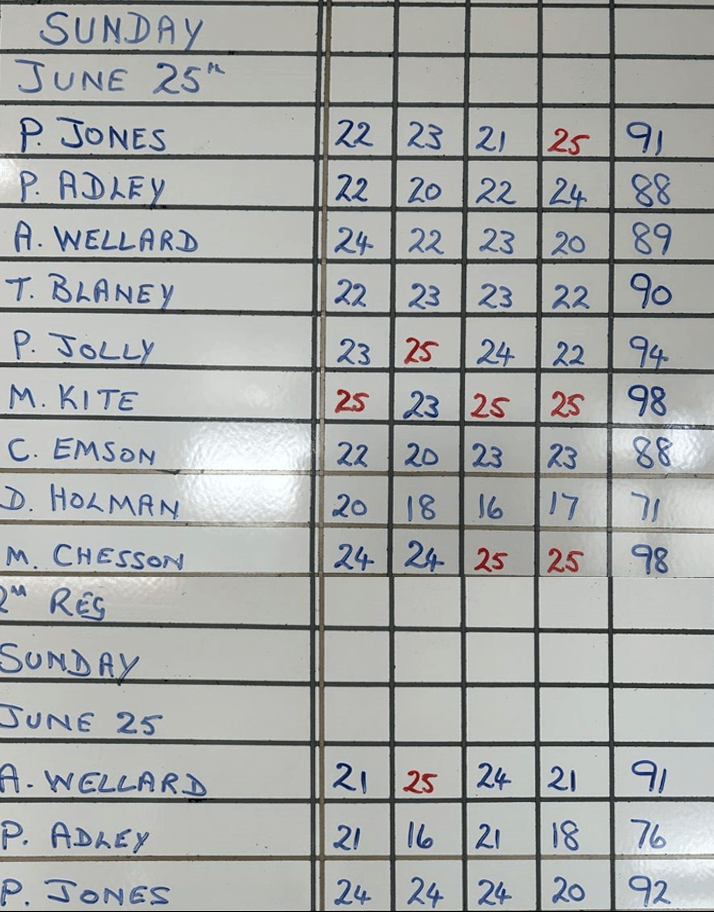 SUNDAY
JUNE 25TH
P. JONES 22 23 21 25 91
P. ADLEY 22 20 22 24 88
A. WELLARD 24 22 23 20 89
T. BLANEY 22 23 23 22 90
P. JOLLY 23 25 24 22 94
M. KITE 25 23 25 25 98
C. EMSON 22 20 23 23 88
D. HOLMAN 20 18 16 17 71
M. CHESSON 24 24 25 25 98
2ND REG
SUNDAY
JUNE 25
A. WELLARD 21 25 24 21 91
P. ADLEY 21 16 21 18 76
P. JONES 24 24 24 20 92